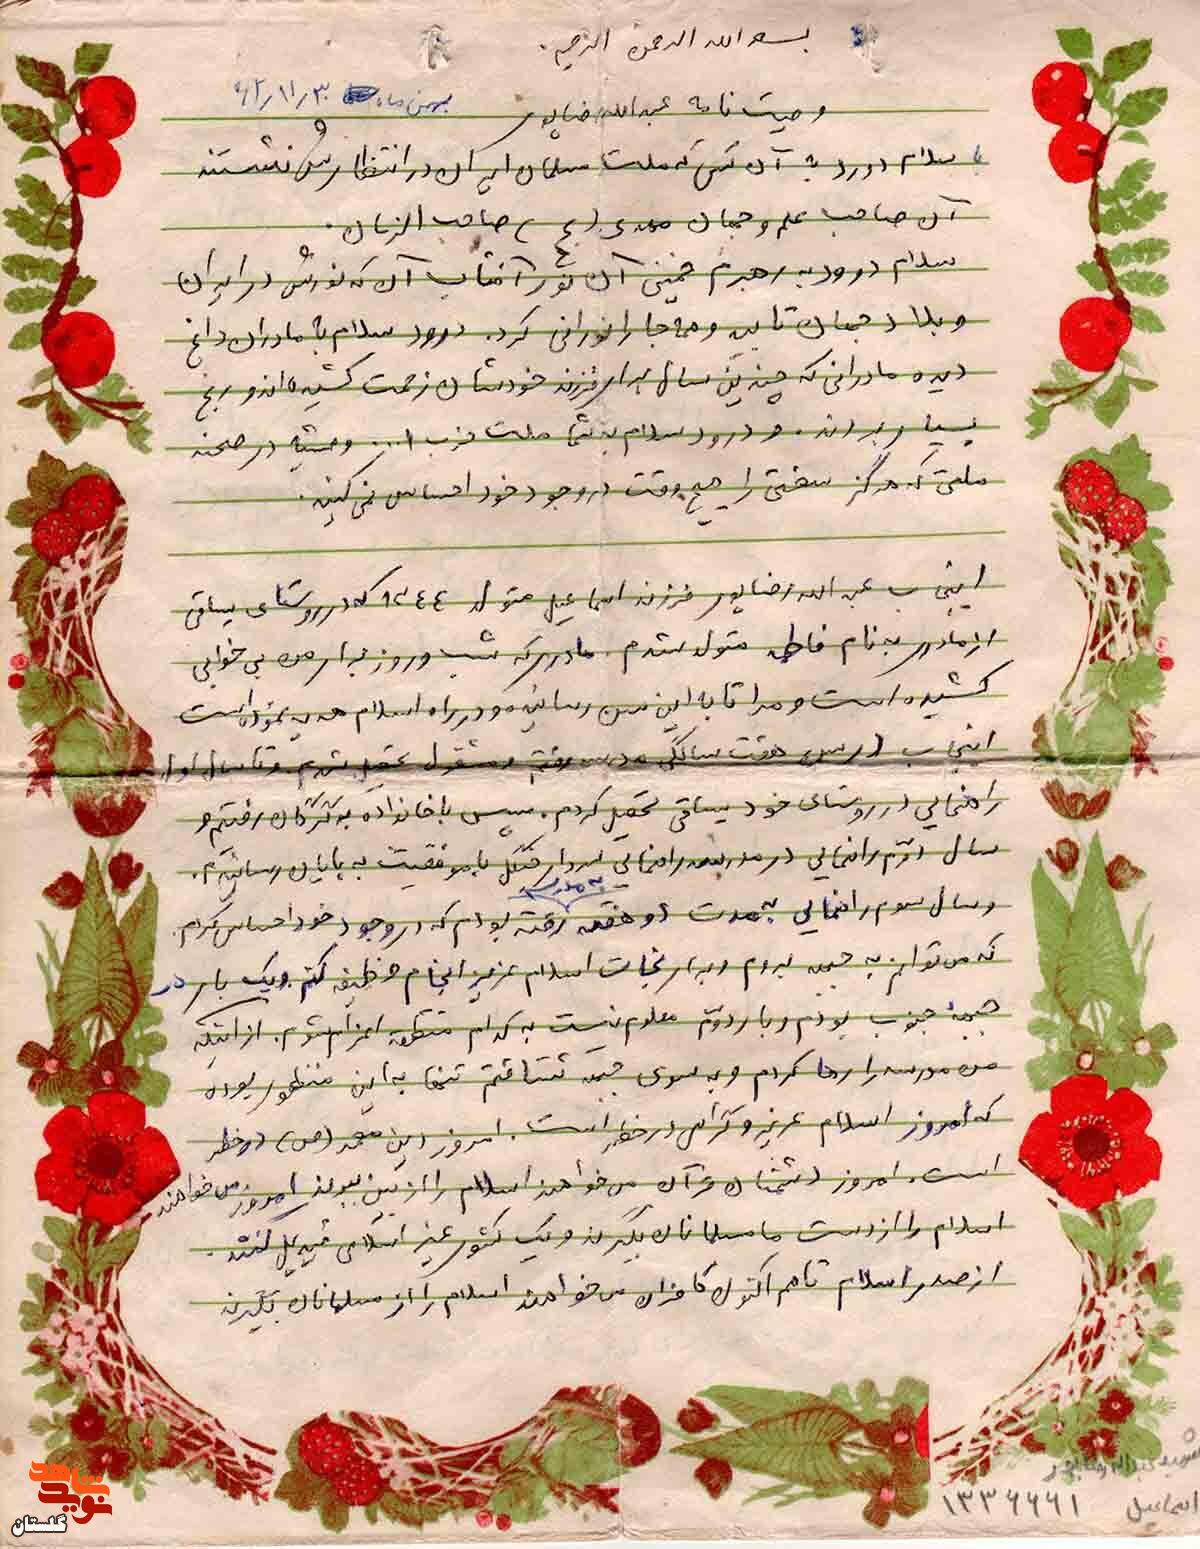 بسم الله الرحمن الرحیم.
وصیت نامه عبدالله رضاپور بهمن ماه ۶۲/۱۱/۳۰
با سلام درود به آن کسی که ملت مسلمان ایران در انتظارش نشستند
آن صاحب علم و جهان مهدی (عج) صاحب الزمان.
سلام درود به رهبرم خمینی آن نور آفتاب آن که نورش در ایران
و بلاد جهان تابید و همه جا را نورانی کرد. درود سلام به مادران داغ
دیده مادرانی که چندین سال برای فرزند خودشان زحمت کشیده اند و رنج
بسیار بردند. و درود سلام به شما ملت حزب ا... همیشه در صحنه
ملتی که هرگز سختی را هیچ وقت در وجود خود احساس نمی کنید.
اینجانب عبدالله رضاپور فرزند اسماعیل متولد ۱۳۴۴ که در روستای یساقی
از مادری به نام فاطمه متولد شدم. مادری که شب و روز برای من بی خوابی
کشیده است و مرا تا به این سن رسانیده و در راه اسلام هدیه نموده است
اینجانب در سن هفت سالگی مدرسه رفتم و مشغول تحصیل شدم. و تا سال اول
راهنمایی در روستای خود یساقی تحصیل کردم. سپس با خانواده به گرگان رفتم و
سال دوم راهنمایی در مدرسه راهنمایی سردار جنگل با موفقیت به پایان رساندم.
و سال سوم راهنمایی به مدت دو هفته به مدرسه رفته بودم که در وجود خود احساس کردم
که می توانم به جبهه بروم و برای نجات اسلام عزیز انجام وظیفه کنم و یک بار در
جبهۀ جنوب بودم و بار دوم معلوم نیست به کدام منطقه اعزام شوم. از اینکه
من مدرسه را رها کردم و به سوی جبهه شتافتم تنها به این منظور بوده
که امروز اسلام عزیز و گرامی در خطر است. امروز دین محمد (ص) در خطر
است. امروز دشمنان قرآن می خواهند اسلام را از بین ببرند امروز می خواهند
اسلام را از دست ما مسلمانان بگیرند و یک کشور غیر اسلامی تبدیل کنند.
از صدر اسلام تا هم اکنون کافران می خواهند اسلام را از مسلمانان بگیرند
شهید عبدالله رضاپور
اسماعیل ۱۳۳۶۶۶۱
نوید شاهد
گلستان